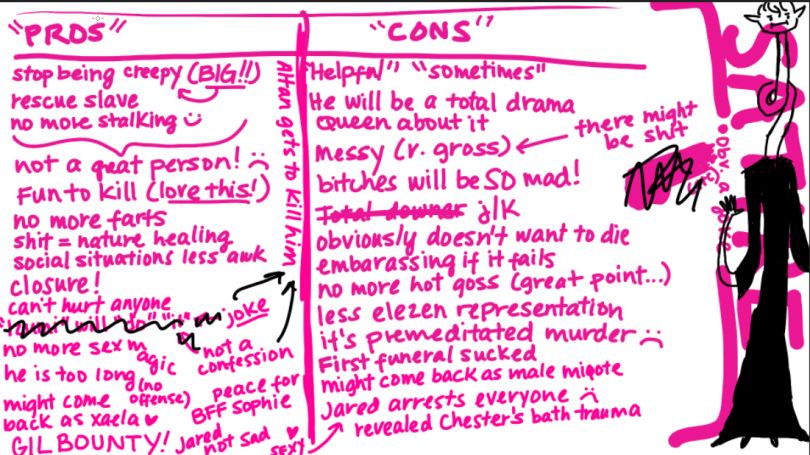 "PROS"
stop being creepy (BIG!!)
rescue slave
no more stalking
not a great person!
Fun to kill (love this!)
no more farts
shit = nature healing
social situations less awk
closure!
can't hurt anyone
joke
not a confession
no more sex magic
he is too long (no offense)
might come back as xaela
GIL BOUNTY!
peace for BFF Sophie
Jared not sad
sexy
Alfan gets to kill him
"CONS"
"Helpful" "sometimes"
He will be a total drama
queen about it
messy (r. gross)
there might
be shit
bitches will be SO mad!
Total downer j/k
obviously doesn't want to die
embarassing if it fails
no more hot goss (great point...)
less elezen representation
it's premeditated murder
First funeral sucked
might come back as male miqote
Jared arrests everyone
revealed Chester's bath trauma